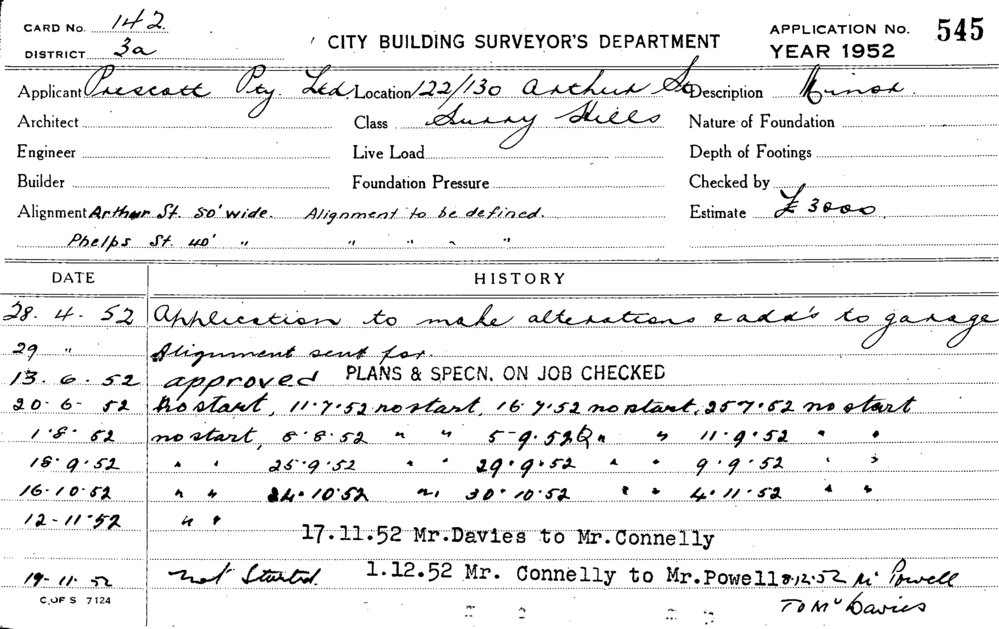 CARD No. 142. CITY BUILDING SURVEYOR'S DEPARTMENT APPLICATION No. 545
DISTRICT 3a YEAR 1952
Applicant Prescott Pty. Ltd. Location 122/130 Arthur St Description Minor.
Architect Class Surry Hills Nature of Foundation
Engineer Live Load Depth of Footings
Builder Foundation Pressure Checked by
Alignment Arthur St. 50' wide. Alignment to be defined. Estimate £3000
Phelps St. 40' " " " " "
DATE HISTORY
28. 4. 52 Application to make alterations & add's to garage
29 " Alignment sent for.
13. 6. 52 approved PLANS & SPECN. ON JOB CHECKED
20-6-52 no start, 11.7.52 no start, 16.7.52 no start, 25.7.52 no start
1.8.52 no start, 8.8.52 " " 5-9.52 " " 11.9.52 " "
18.9.52 " " 25.9.52 " " 29.9.52 " " 9.9.52 " "
16-10-52 " " 24.10.52 " " 30.10.52 " " 4.11.52 " "
12-11-52 " "
17.11.52 Mr.Davies to Mr.Connelly
19-11-52 not Started. 1.12.52 Mr. Connelly to Mr.Powell 8.12.52 Mr Powell
C. OF S 7124 To Mr Davies